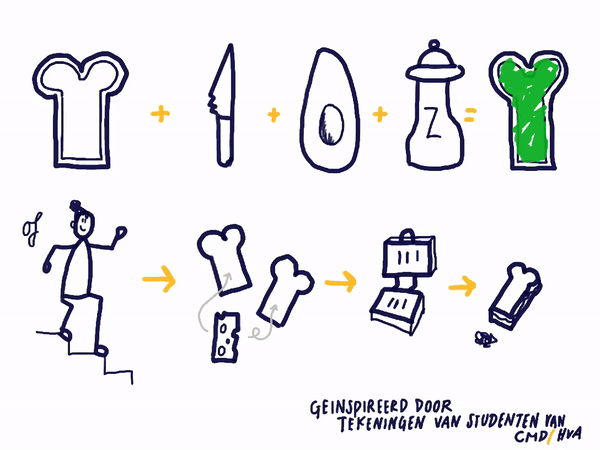 Z
of
GEINSPIREERD DOOR
TEKENINGEN VAN STUDENTEN VAN
CMD/HVA